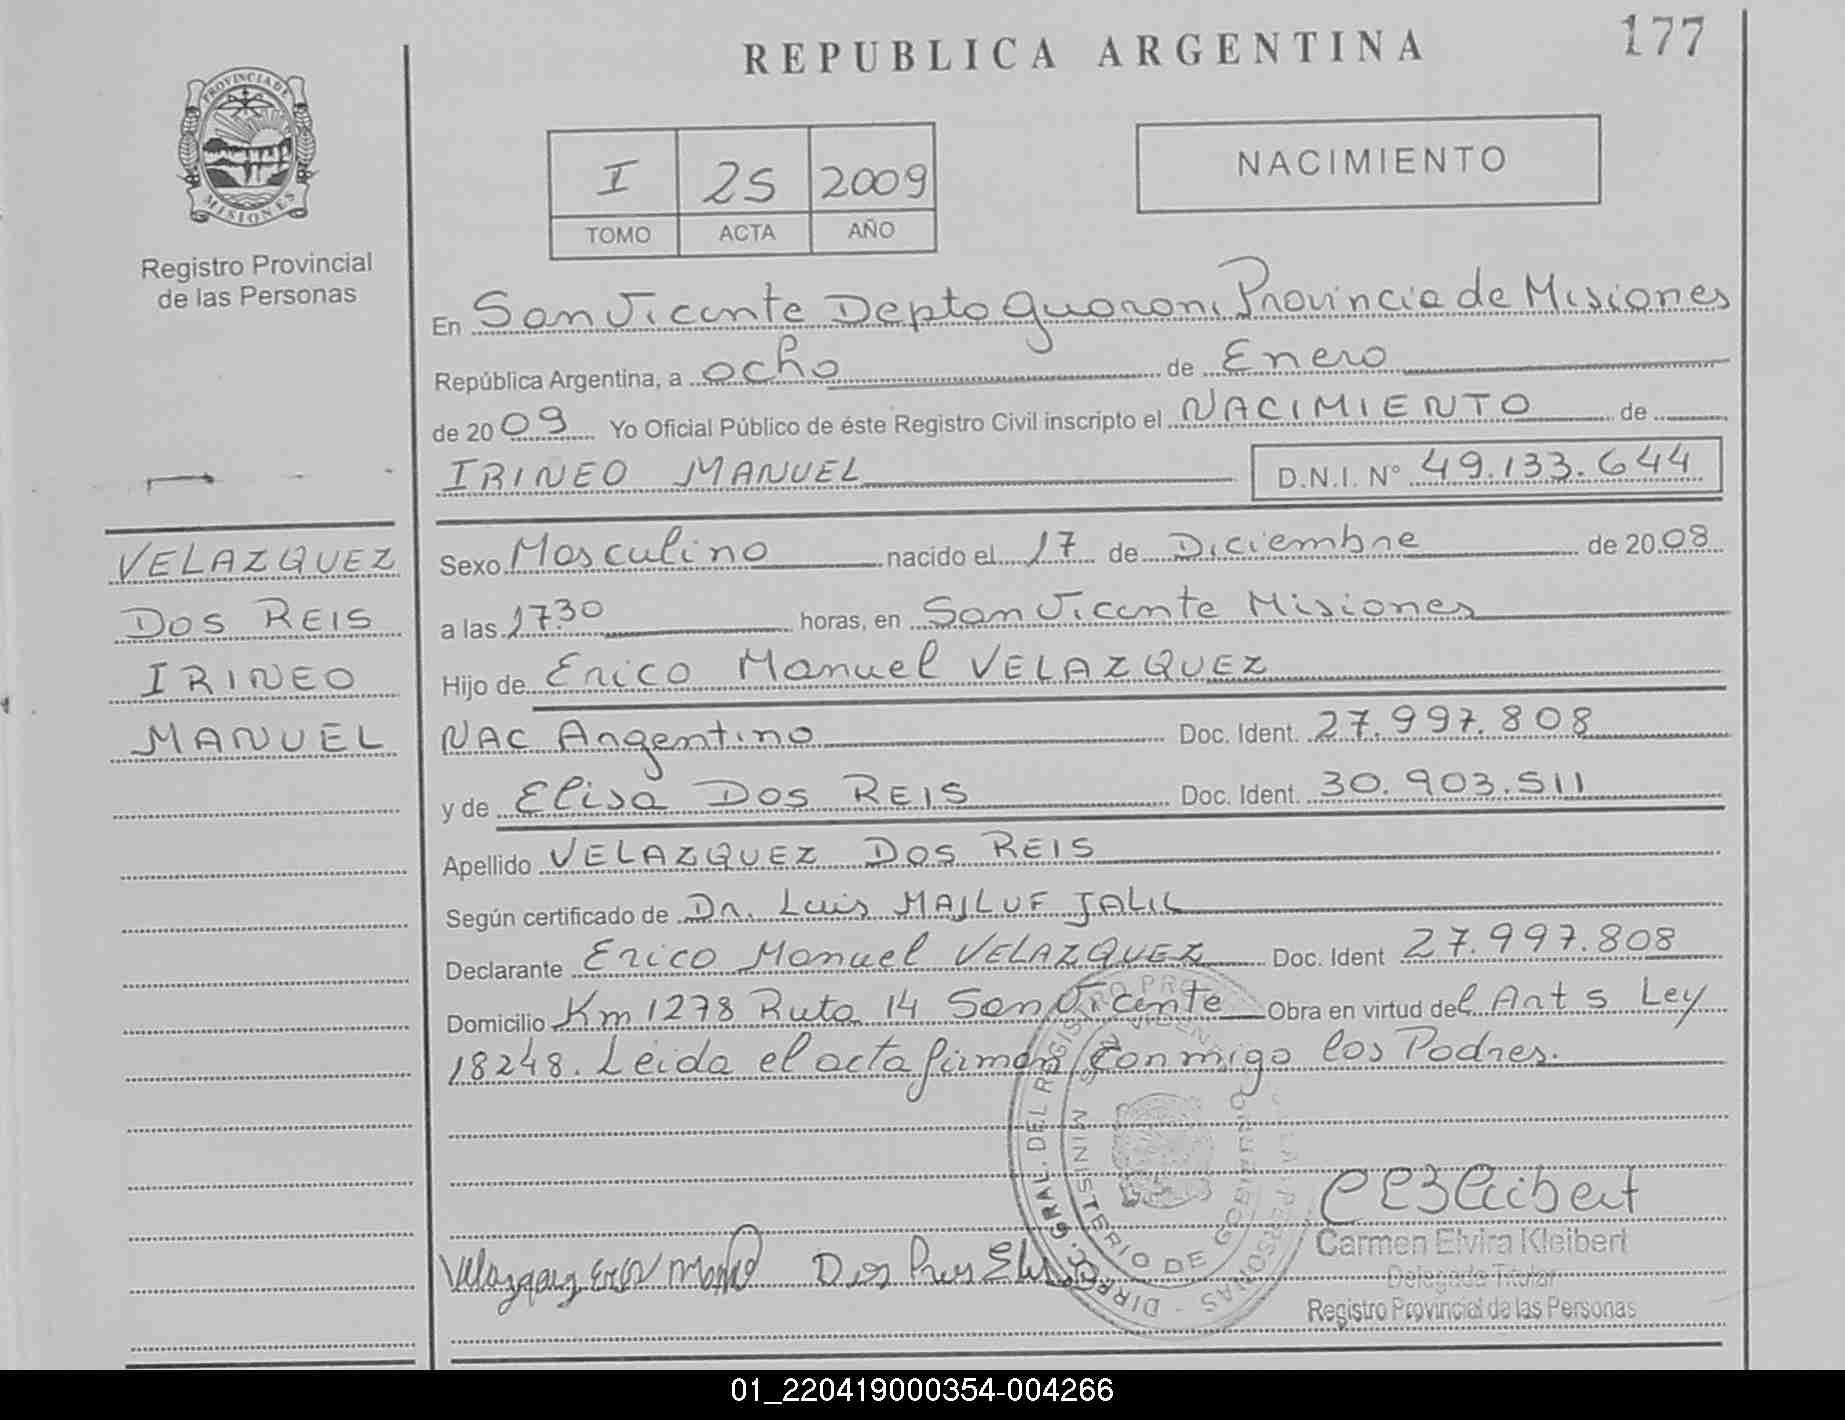 REPUBLICA ARGENTINA
177
PROVINCIA DE MISIONES
Registro Provincial
de las Personas
I 25 2009
TOMO ACTA AÑO
NACIMIENTO
En San Vicente Depto Guarani Provincia de Misiones
República Argentina, a ocho de Enero
de 2009 Yo Oficial Público de éste Registro Civil inscripto el NACIMIENTO de
IRINEO MANUEL D.N.I. N° 49.133.644
VELAZQUEZ
DOS REIS
IRINEO
MANUEL
Sexo Masculino nacido el 17 de Diciembre de 2008
a las 17.30 horas, en San Vicente Misiones
Hijo de Erico Manuel VELAZQUEZ
NAC Argentino Doc. Ident. 27.997.808
y de Elisa DOS REIS Doc. Ident. 30.903.511
Apellido VELAZQUEZ DOS REIS
Según certificado de Dr. Luis MAJLUF JALIL
Declarante Erico Manuel VELAZQUEZ Doc. Ident 27.997.808
Domicilio Km 1278 Ruta 14 San Vicente Obra en virtud del Art 5 Ley
18248. Leida el acta firman conmigo los Padres.
DIREC. GRAL. DEL REGISTRO PRO LAS PERSONAS
MINISTERIO DE GOBIERNO
Carmen Elvira Kleibert
Delegada Titular
Registro Provincial de las Personas
01_220419000354-004266